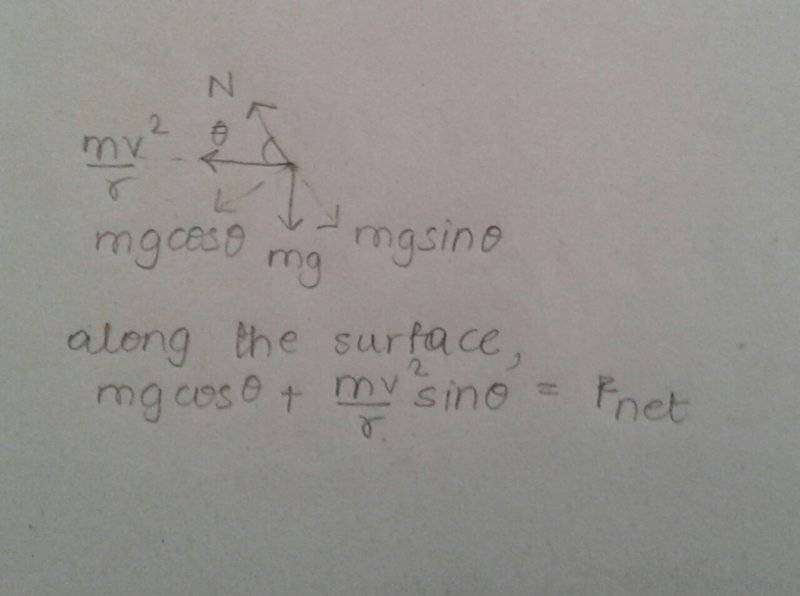 N
θ
mv²/r
mgcosθ mg mgsinθ
along the surface,
mgcosθ + mv²/r sinθ = Fnet